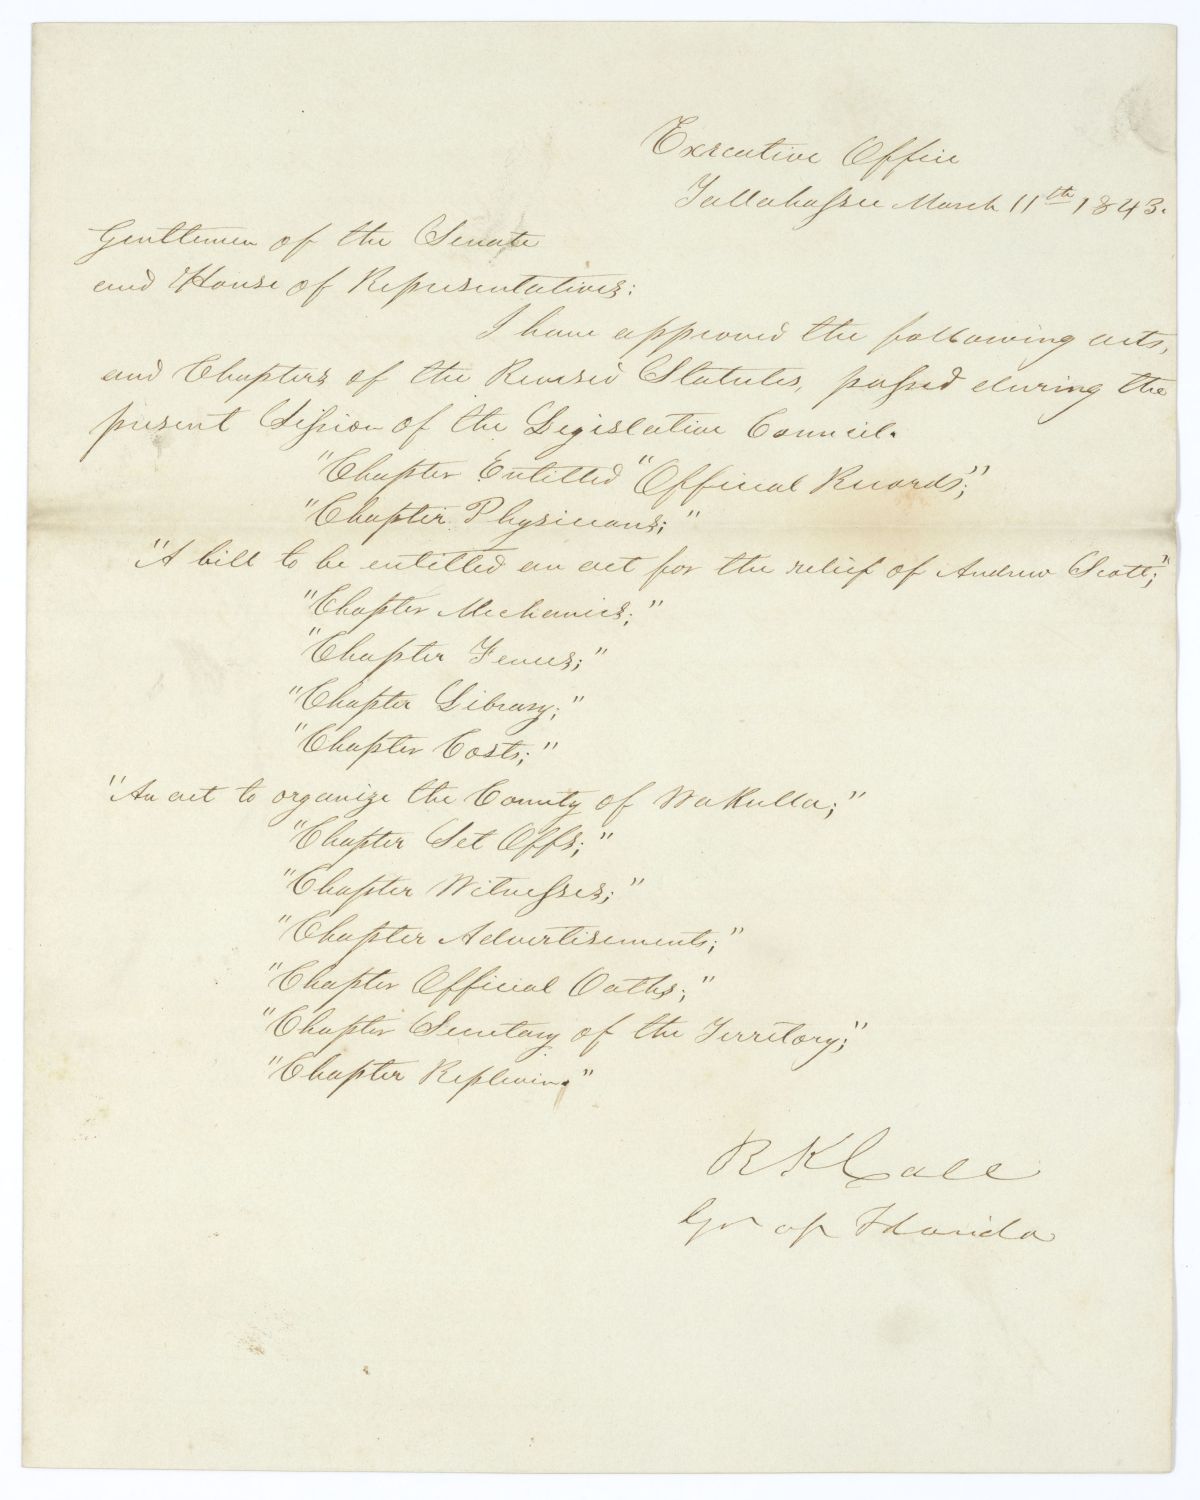 Executive Office
Tallahassee March 11th 1843.
Gentlemen of the Senate
and House of Representatives:
I have approved the following acts,
and Chapters of the Revised Statutes, passed during the
present Session of the Legislative Council.
"Chapter Entitled "Official Records;"
"Chapter Physicians;"
"A bill to be entitled an act for the relief of Andrew Scott;"
"Chapter Mechanics;"
"Chapter Fences;"
"Chapter Library;"
"Chapter Costs;"
"An act to organize the County of Wakulla;"
"Chapter Set Offs;"
"Chapter Witnesses;"
"Chapter Advertisements;"
"Chapter Official Oaths;"
"Chapter Secretary of the Territory;"
"Chapter Replevin."
R K Call
Gov of Florida